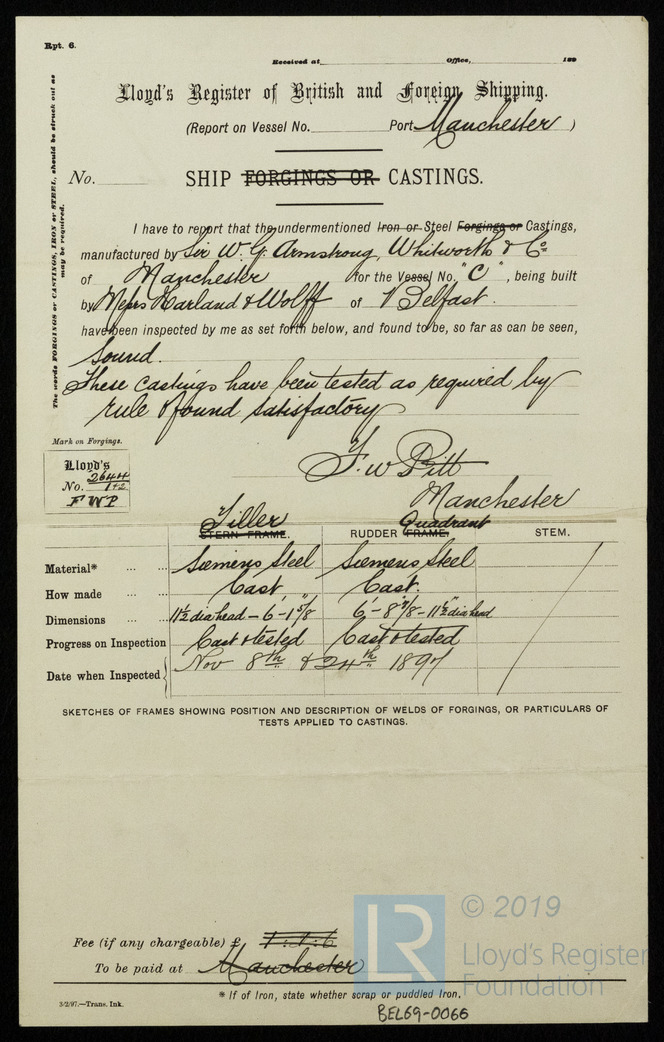 Rpt. 6.
Received at Office, 189
Lloyd's Register of British and Foreign Shipping.
(Report on Vessel No. Port Manchester )
No. SHIP FORGINGS OR CASTINGS.
The words FORGINGS or CASTINGS, IRON or STEEL, should be struck out as may be required.
I have to report that the undermentioned Iron or Steel Forgings or Castings,
manufactured by Sir W. G. Armstrong, Whitworth & Co
of Manchester for the Vessel No. "C", being built
by Messrs Harland & Wolff of Belfast.
have been inspected by me as set forth below, and found to be, so far as can be seen,
Sound.
These castings have been tested as required by
rule & found satisfactory
Mark on Forgings.
Lloyd's
No. 2644
1+2
FWP
F. W Pitt
Manchester
Tiller Quadrant
STERN FRAME. RUDDER FRAME. STEM.
Material* Siemens Steel Siemens Steel
How made Cast Cast.
Dimensions 11½ dia head - 6'-1⅝" 6'-8⅞" - 11½" dia head
Progress on Inspection Cast & tested Cast & tested
Date when Inspected Nov 8th & 24th 1897
SKETCHES OF FRAMES SHOWING POSITION AND DESCRIPTION OF WELDS OF FORGINGS, OR PARTICULARS OF
TESTS APPLIED TO CASTINGS.
Fee (if any chargeable) £ 1:1:6
To be paid at Manchester
* If of Iron, state whether scrap or puddled Iron.
3/2/97.—Trans. Ink.
BEL69-0066
© 2019
LR
Lloyd's Register
Foundation